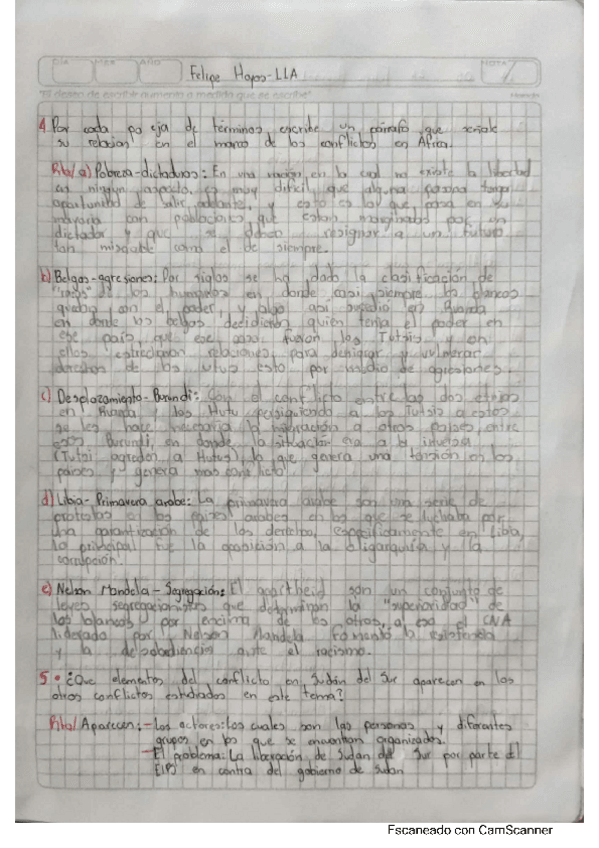 DÍA MES AÑO Felipe Hoyos-11A NOTA
"El deseo de escribir aumenta a medida que se escribe"
4 Por cada pareja de términos, escribe un párrafo que señale
su relación en el marco de los conflictos en África.
Rta/ a) Pobreza-dictaduras: En una nación en la cual no existe la libertad
en ningún aspecto, es muy difícil que alguna persona tenga
oportunidad de salir adelante, y esto es lo que pasa en su
mayoria con poblaciones que estan marginadas por un
dictador y que se deben resignar a un futuro
tan miserable como el de siempre.
b) Belgas-agresiones: Por siglos se ha dado la clasificación de
"razas" de los humanos en donde casi siempre los blancos
quedan con el poder, y algo asi sucedio en Ruanda
en donde los belgas decidieron quien tenia el poder en
ese pais, que ese caso fueron los Tutsis y en
ellos estrecharon relaciones para denigrar y vulnerar
derechos de los Hutus esto por medio de agresiones.
c) Desplazamiento-Burundi: Con el conflicto entre las dos etnias
en Ruanda y los Hutu persiguiendo a los Tutsis a estos
se les hace necesaria la migración a otros paises, entre
esos Burundi, en donde la situación era a la inversa
(Tutsi agreden a Hutus), lo que genera una tensión en los
paises y genera mas conflicto.
d) Libia-Primavera arabe: La primavera arabe son una serie de
protestas a los paises arabes en los que se luchaba por
una garantización de los derechos, especificamente en Libia,
lo principal fue la oposición a la oligarquía y la
corrupción.
e) Nelson Mandela-Segregación: El apartheid son un conjunto de
leyes segregacionistas que determinan la "superioridad" de
los blancos por encima de los otros, a eso el CNA
liderado por Nelson Mandela fomentó la resistencia
y la desobediencia ante el racismo.
5 • ¿Que elementos del conflicto en Sudán del Sur aparecen en los
otros conflictos estudiados en este tema?
Rta/ Aparecen: - Los actores: los cuales son las personas y diferentes
grupos en los que se encuentran organizados.
- El problema: La liberación de Sudan del Sur por parte del
EIPS en contra del gobierno de Sudan
Escaneado con CamScanner